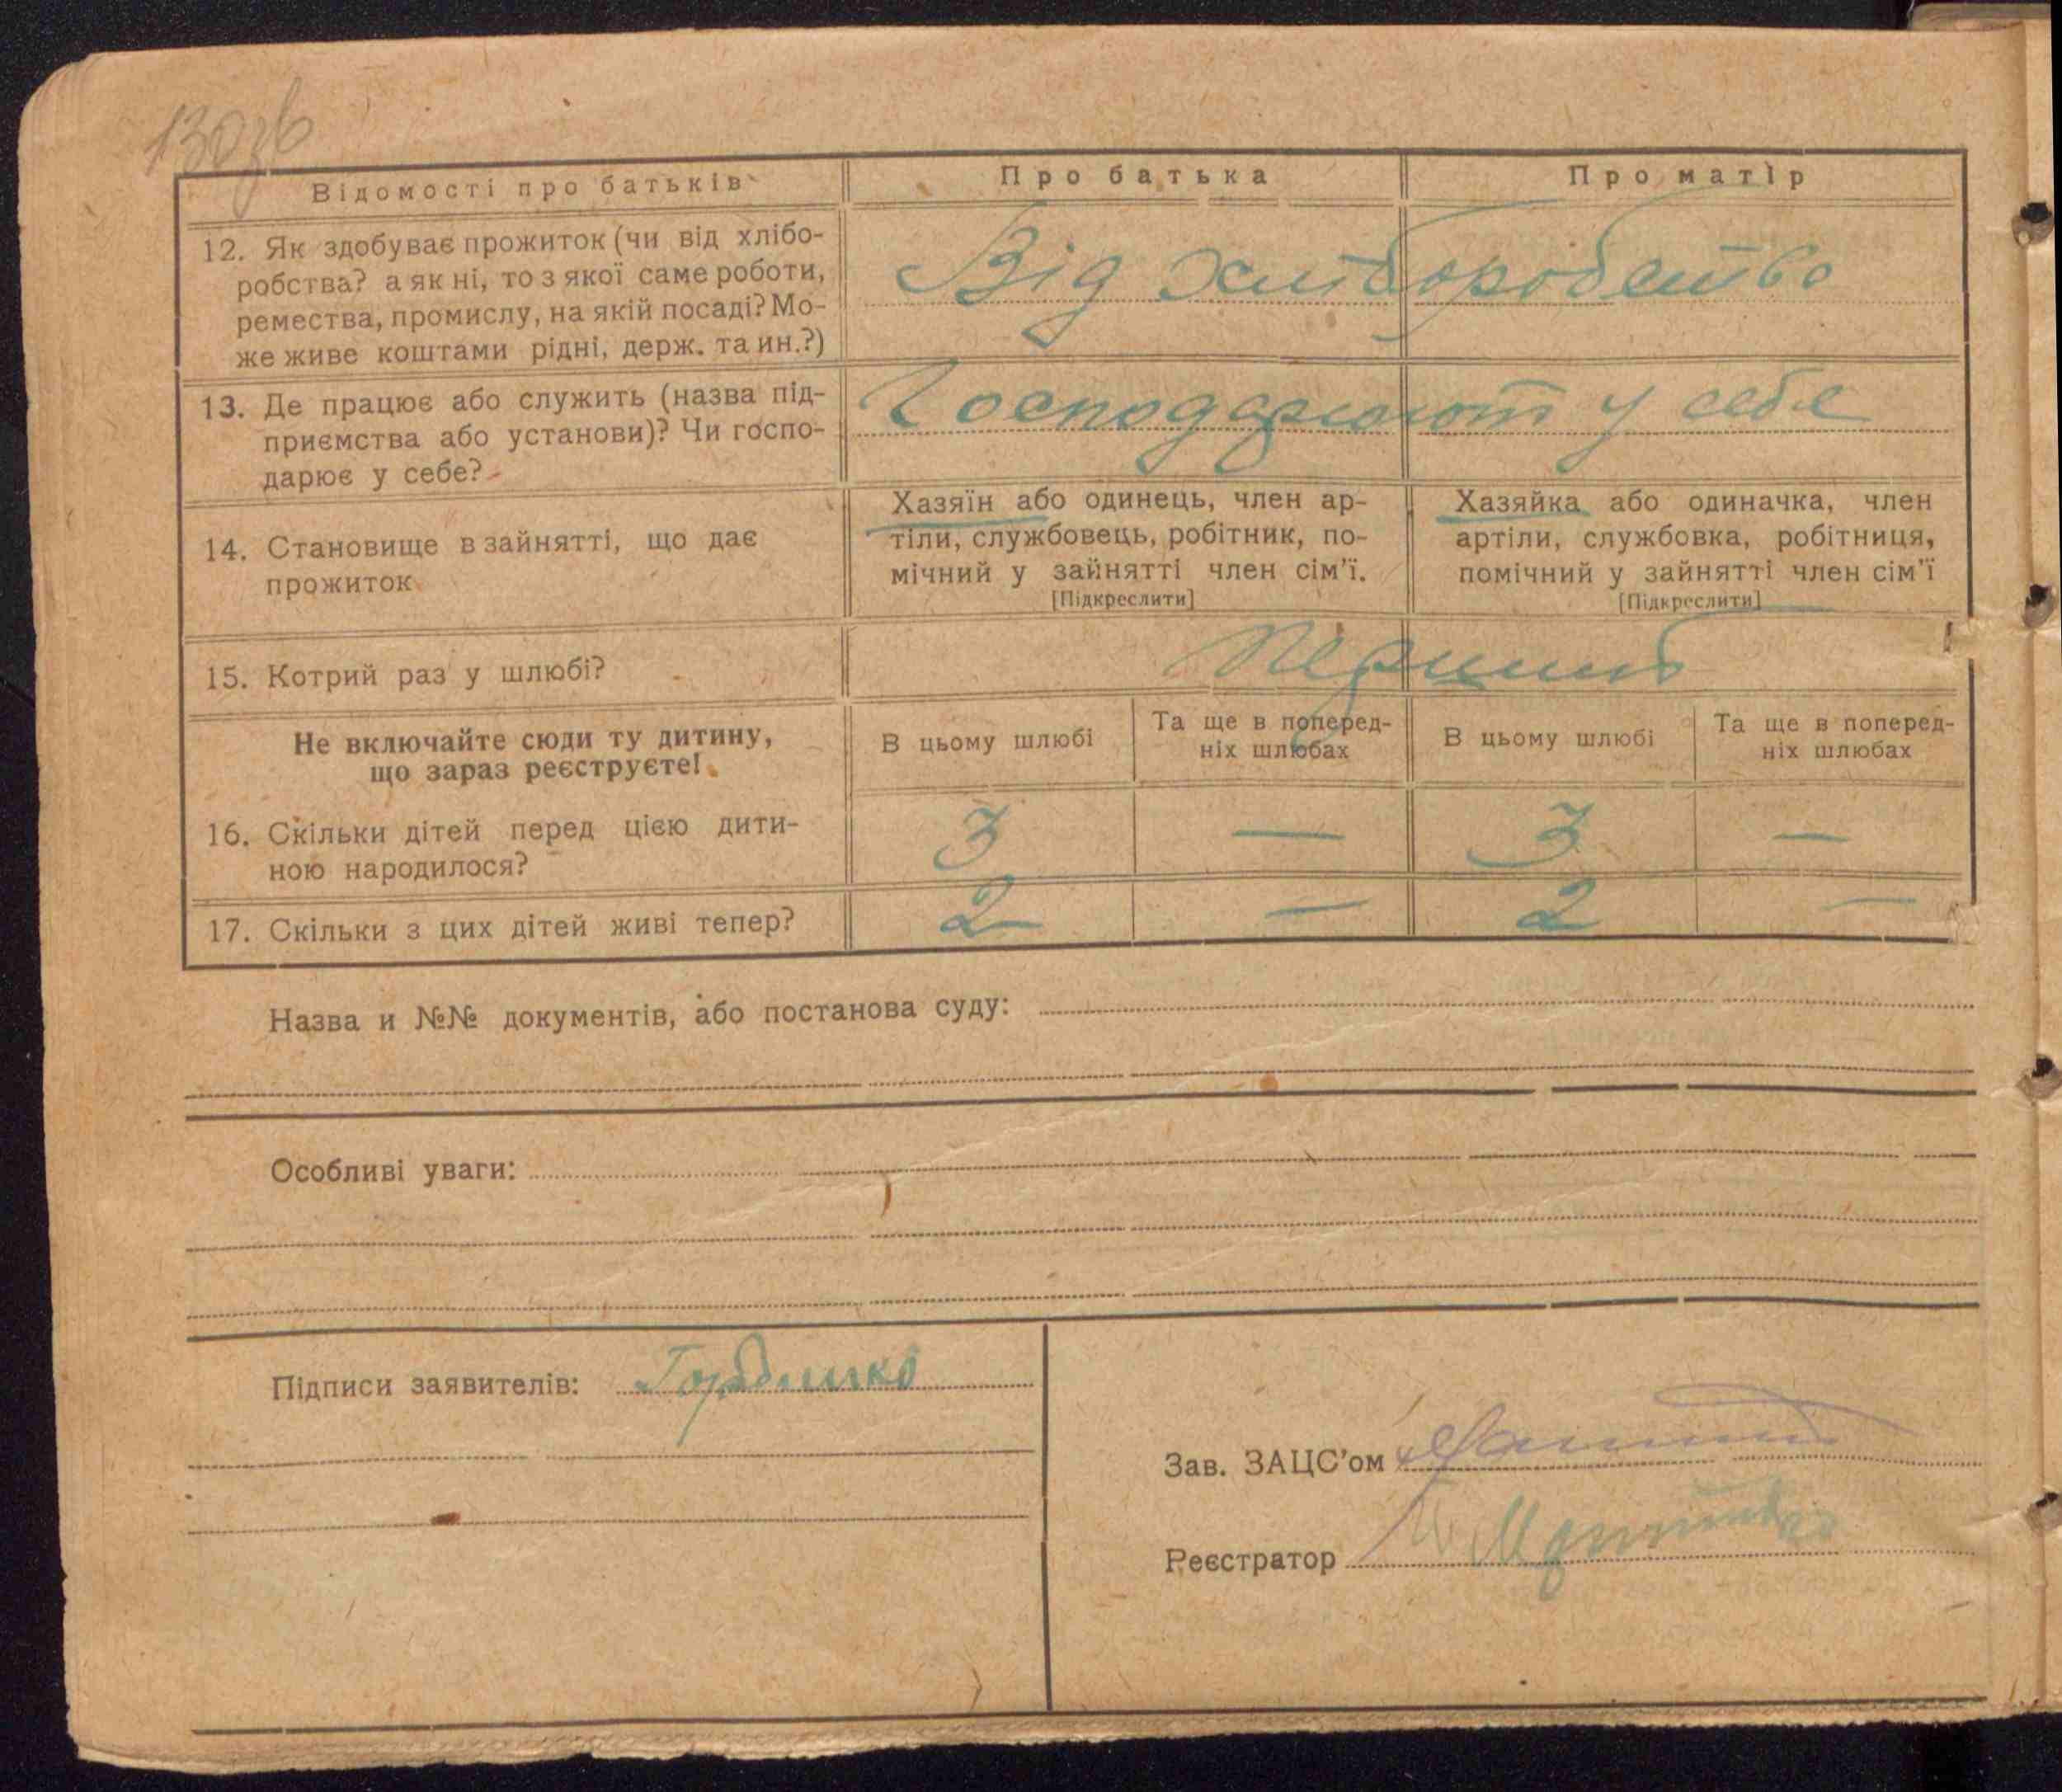 Відомості про батьків
Про батька
Про матір
12. Як здобуває прожиток (чи від хлібо-
робства? а як ні, то з якої саме роботи,
ремества, промислу, на якій посаді? Мо-
же живе коштами рідні, держ. та ин.?)
Від хліборобства
13. Де працює або служить (назва під-
приємства або установи)? Чи госпо-
дарює у себе?
Господарюют у себе
14. Становище в зайнятті, що дає
прожиток
Хазяїн або одинець, член ар-
тіли, службовець, робітник, по-
мічний у зайнятті член сім'ї.
[Підкреслити]
Хазяйка або одиначка, член
артіли, службовка, робітниця,
помічний у зайнятті член сім'ї
[Підкреслити]
15. Котрий раз у шлюбі?
Не включайте сюди ту дитину,
що зараз реєструєте!
В цьому шлюбі
Та ще в поперед-
ніх шлюбах
В цьому шлюбі
Та ще в поперед-
ніх шлюбах
16. Скільки дітей перед цією дити-
ною народилося?
3 — 3 —
17. Скільки з цих дітей живі тепер?
2 — 2 —
Назва и №№ документів, або постанова суду:
Особливі уваги:
Підписи заявителів:
Зав. ЗАЦС'ом
Реєстратор